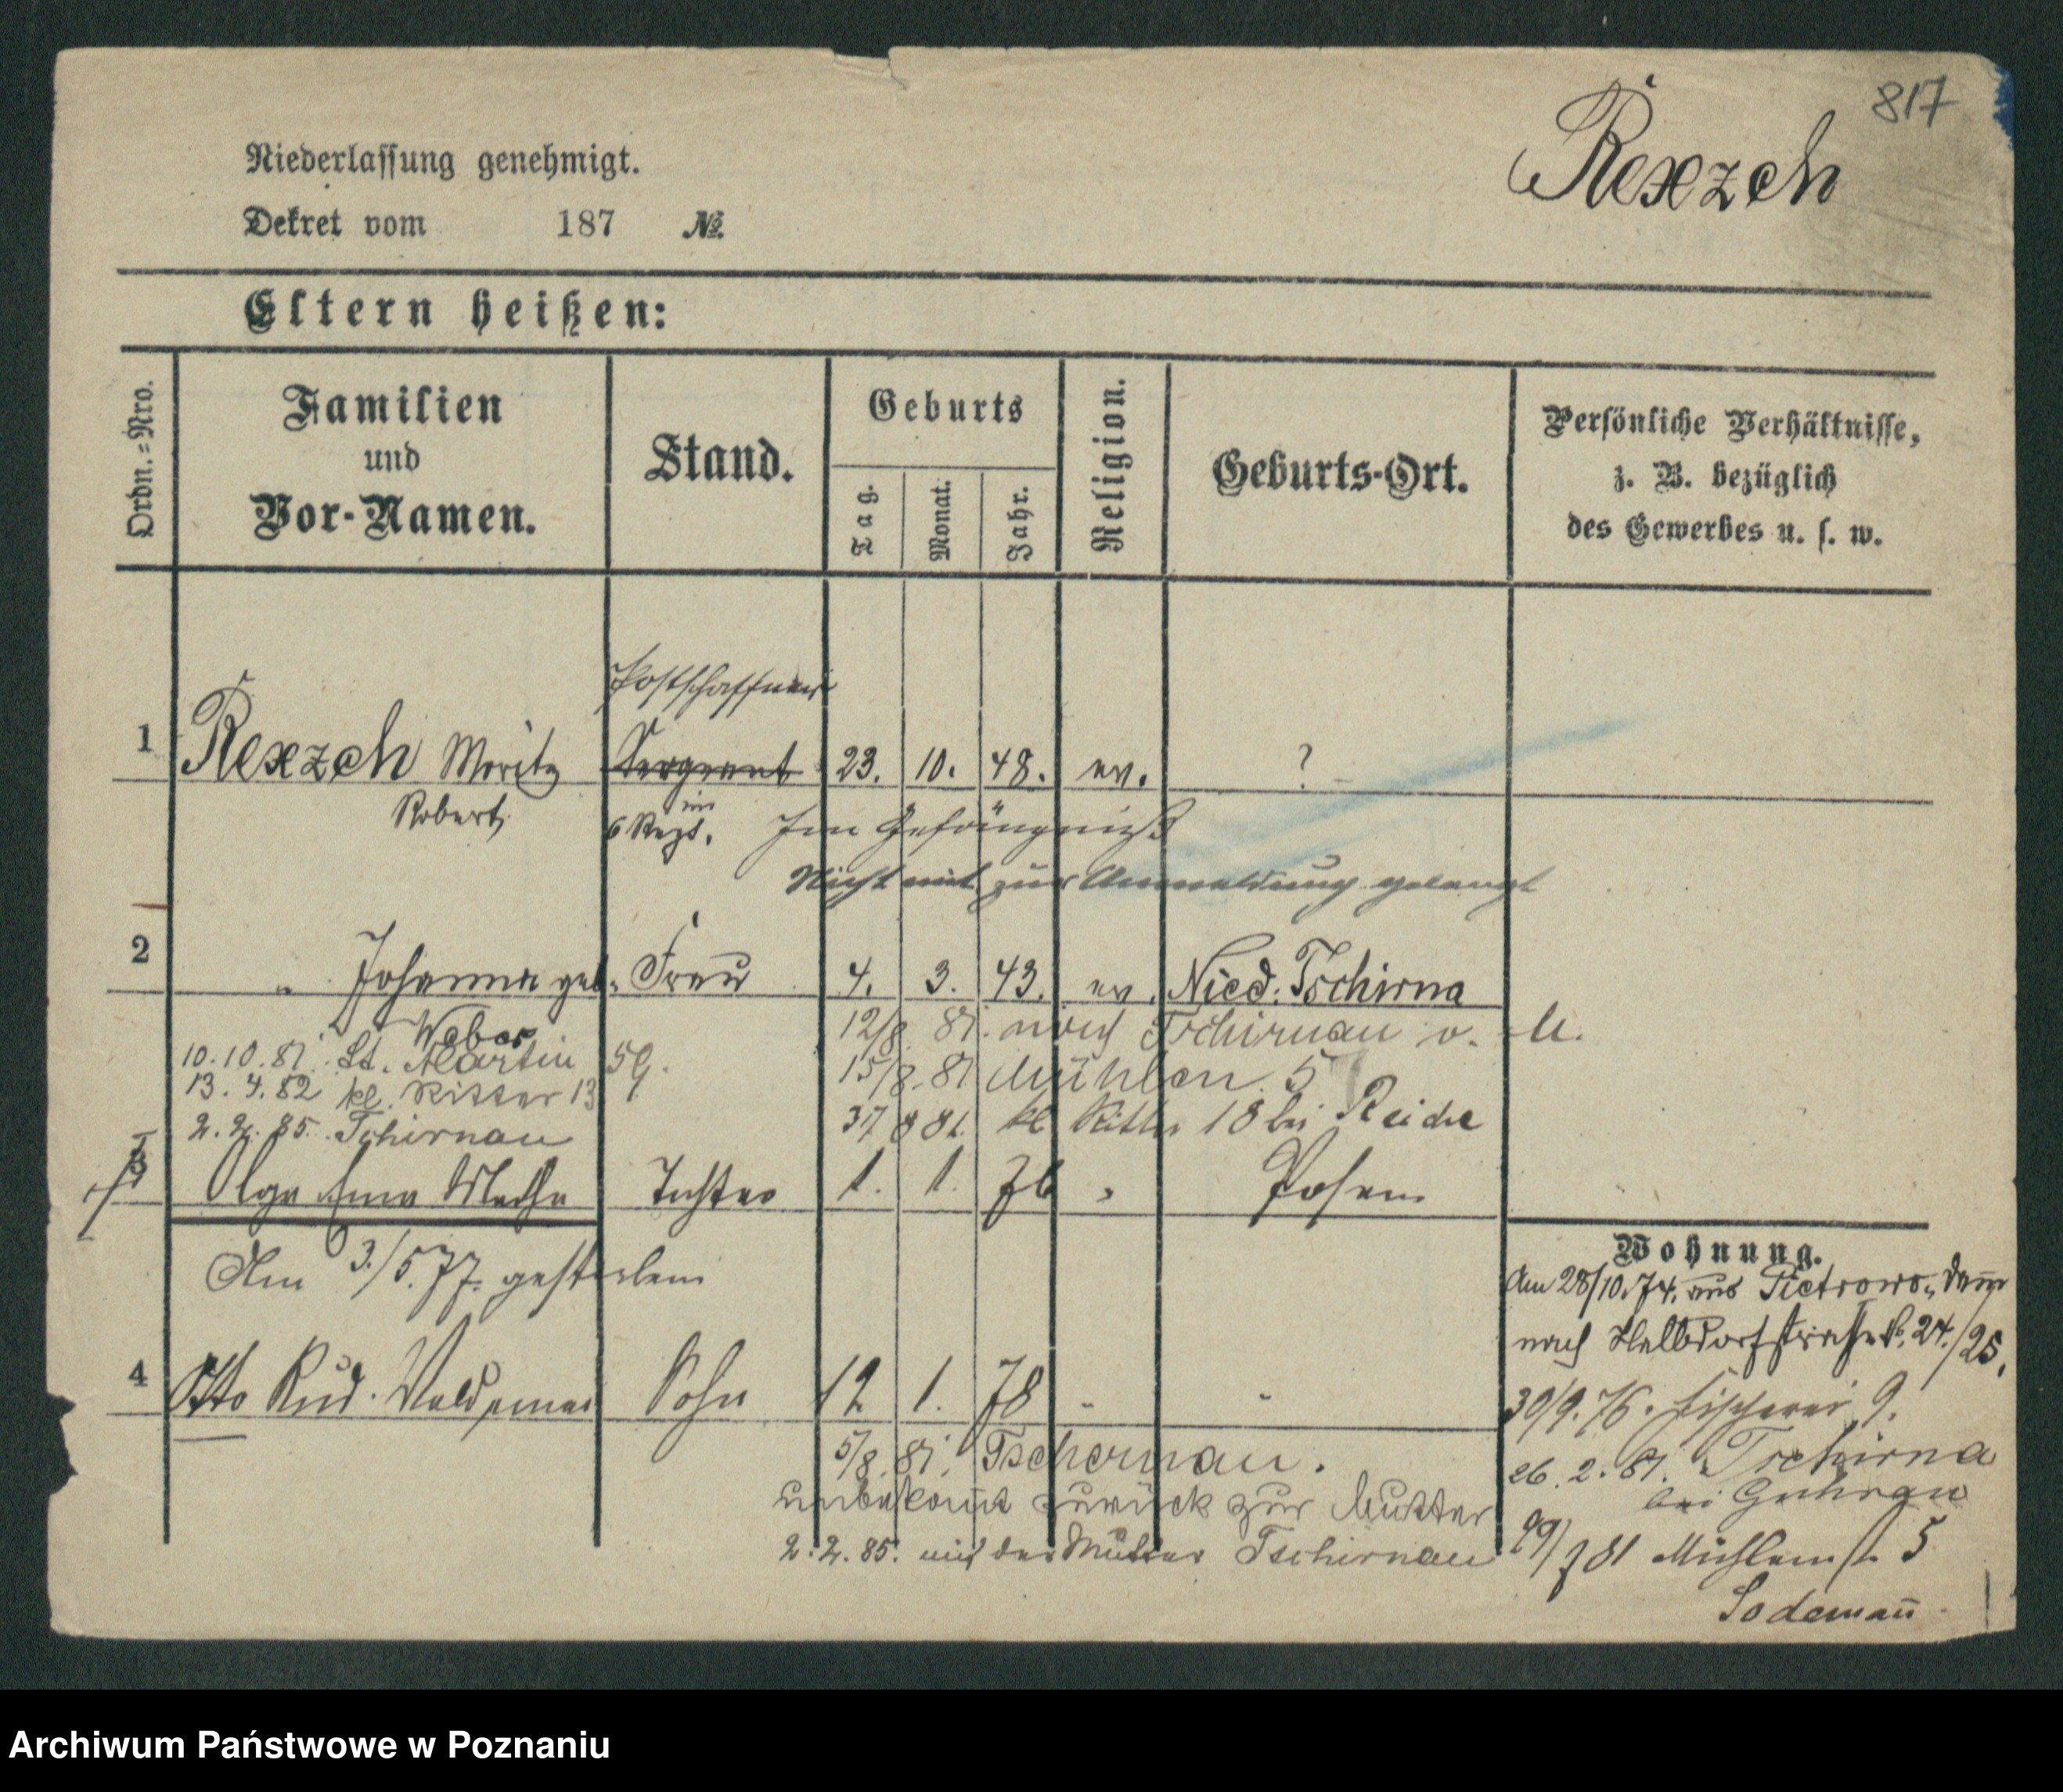 817
Rexzch
Niederlassung genehmigt.
Dekret vom 187 №
Eltern heißen:
Ordn.=Nro.
Familien
und
Vor-Namen.
Stand.
Geburts
Tag.
Monat.
Jahr.
Religion.
Geburts-Ort.
Persönliche Verhältnisse,
z. B. bezüglich
des Gewerbes u. s. w.
Postschaffner
1 Rexzch Moritz Sergeant 23. 10. 48. ev. ?
Robert im
6 Regt. Im Gefängniß
Nicht mit zur Anmeldung gelangt
2 " Johanna geb. Frau 4. 3. 43. ev. Nied. Tschirna
Weber
12/8. 81. nach Tschirnau v. U.
10.10.81. St. Martin 59.
15/8. 81 Mühlen. 5
13. 4. 82 kl. Ritter 13
31 8 81. kl Ritter 18 bei Reide
2. 2. 85. Tschirnau
3 Olga Tochter 1. 1. 76 " Posen
Am 3./5. 77. gestorben
Wohnung.
Am 28/10. 74. aus Pietrowo, dann
nach Halbdorfstraße No. 24./25.
4 Otto Rud. Waldemar Sohn 12 1. 78 " "
30/9. 76. Fischerei 9.
5/8. 81. Tschernau.
26. 2. 81. Tschirna
bei Guhrau
unbekannt zurück zur Mutter
29/7 81 Mühlenst. 5
2. 2. 85. mit der Mutter Tschirnau
Sodemañ
Archiwum Państwowe w Poznaniu